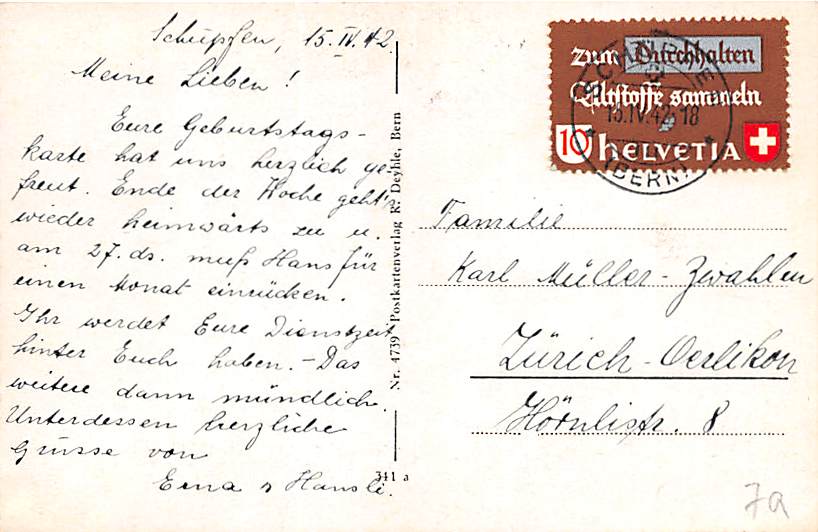 Schüpfen, 15. IV. 42.
Meine Lieben!
Eure Geburtstags-
karte hat uns herzlich ge-
freut. Ende der Woche geht's
wieder heimwärts zu u.
am 27. ds. muss Hans für
einen Monat einrücken.
Ihr werdet Eure Dienstzeit
hinter Euch haben. – Das
weitere dann mündlich.
Unterdessen herzliche
Grüsse von
Erna & Hansli.
Nr. 4739 Postkartenverlag R. Deyhle, Bern
341 a
zum Durchhalten
Altstoffe sammeln
10 HELVETIA
SCHÜPFEN
15.IV.42-18
(BERN)
Familie
Karl Müller-Zwahlen
Zürich-Oerlikon
Hörnlistr. 8
7a